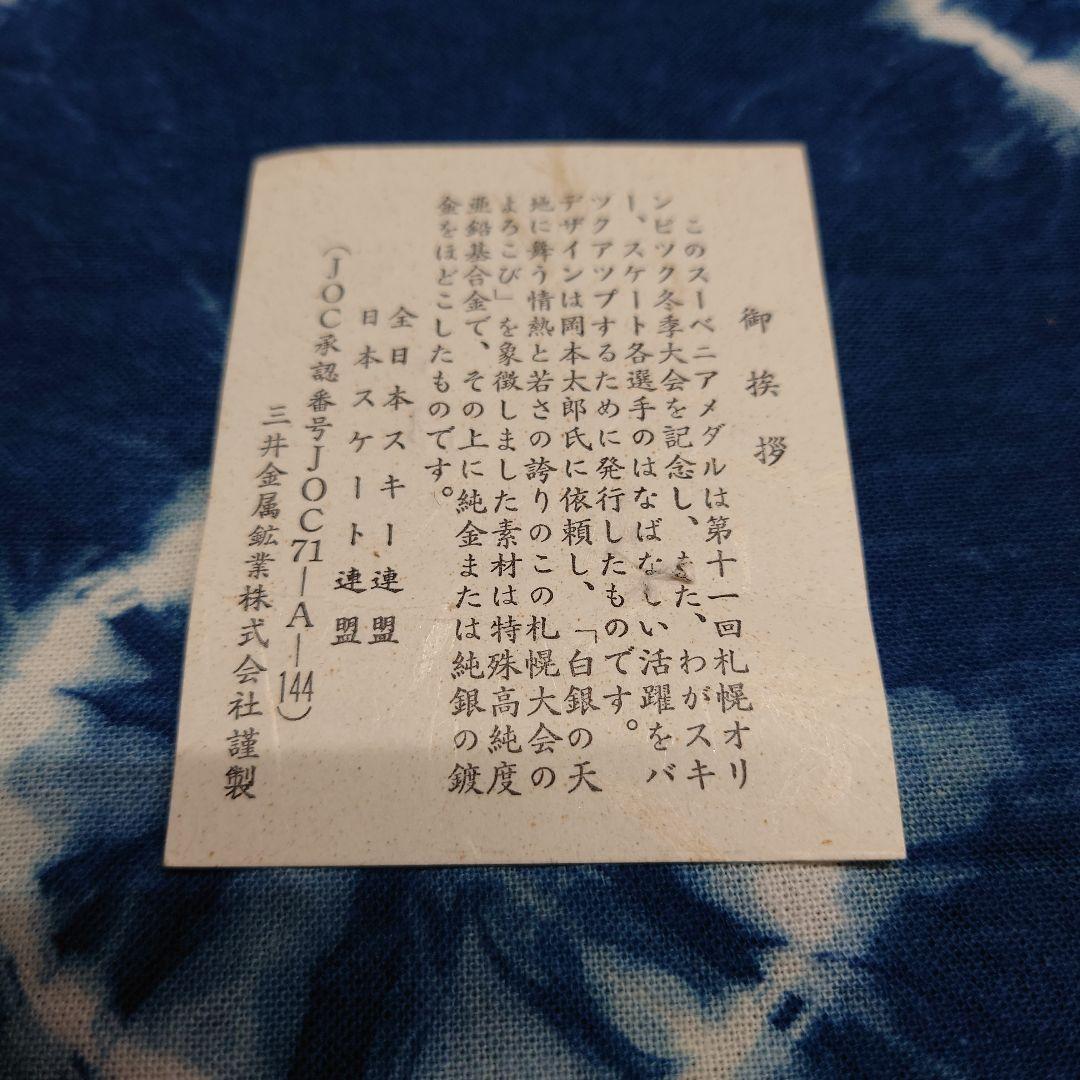 御挨拶
このスーベニアメダルは第十一回札幌オリ
ンピック冬季大会を記念し、また、わがスキ
ー、スケート各選手のはなばなしい活躍をバ
ックアップするために発行したものです。
デザインは岡本太郎氏に依頼し、「白銀の天
地に舞う情熱と若さの誇りのこの札幌大会の
よろこび」を象徴しました素材は特殊高純度
亜鉛基合金で、その上に純金または純銀の鍍
金をほどこしたものです。
全日本スキー連盟
日本スケート連盟
(JOC承認番号JOC71―A―144)
三井金属鉱業株式会社謹製